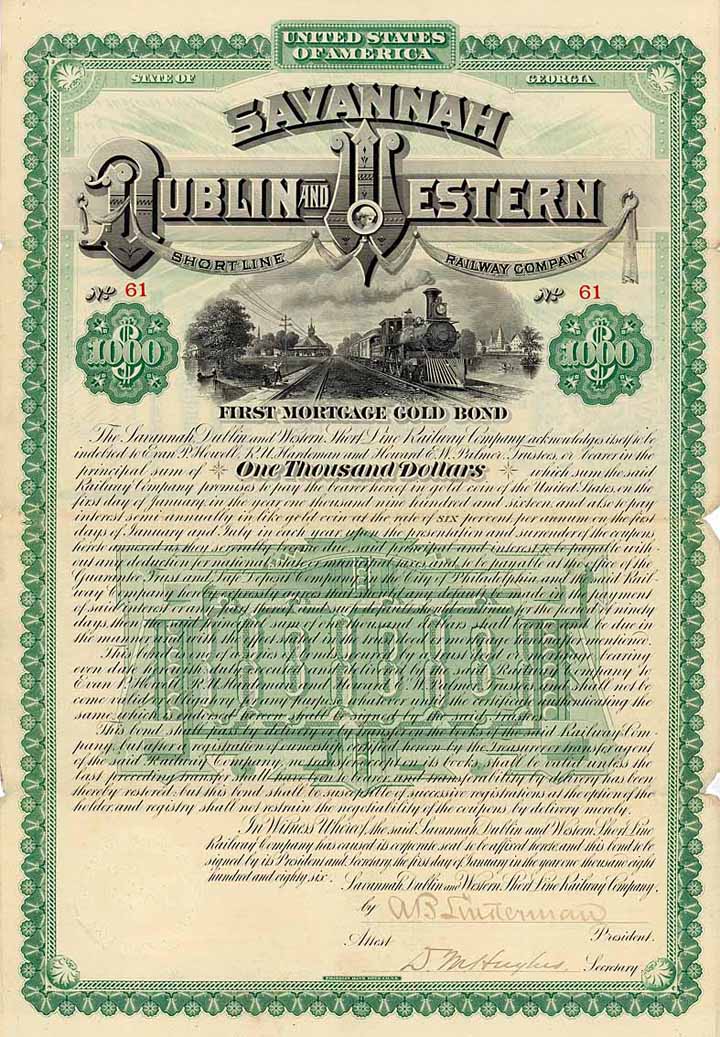 UNITED STATES
OF AMERICA
STATE OF GEORGIA
SAVANNAH
DUBLIN AND WESTERN
SHORT LINE RAILWAY COMPANY
No 61 No 61
$1000 $1000
FIRST MORTGAGE GOLD BOND
The Savannah, Dublin and Western Short Line Railway Company acknowledges itself to be
indebted to Evan P. Howell, R. U. Hardeman and Howard E. W. Palmer, Trustees, or bearer in the
principal sum of One Thousand Dollars which sum the said
Railway Company promises to pay the bearer hereof in gold coin of the United States, on the
first day of January in the year one thousand nine hundred and sixteen and also to pay
interest semi-annually in like gold coin at the rate of SIX percent per annum on the first
days of January and July in each year after the presentation and surrender of the coupons
hereto annexed as they severally become due principal and interest to be payable with-
out any deduction for national taxes and to be payable at the office of the
Guarantee Trust and Safe Deposit Company in the City of Philadelphia and the said Rail-
way Company hereby expressly agrees that in case default be made in the payment
of said interest and such default shall continue for ninety
days, then the sum of one thousand dollars shall become due in
the manner and with the effect
This bond is one of a series bearing
even date duly executed and delivered by the said Railway Company to
Evan P. Howell, R. U. Hardeman and Howard E. W. Palmer Trustees, and shall not be
come obligatory for any purpose whatever until the certificate authenticating the
same which is endorsed hereon shall be signed by the said trustees.
This bond shall pass by delivery or by transfer on the books of the said Railway Com-
pany, but after a registration of ownership certified hereon by the Treasurer or transfer agent
of the said Railway Company, no transfer except on its books shall be valid unless the
last preceding transfer shall have been to bearer and transferability by delivery has been
thereby restored; but this bond shall be susceptible of successive registrations at the option of the
holder, and registry shall not restrain the negotiability of the coupons by delivery merely.
In Witness Whereof, the said Savannah, Dublin and Western Short Line
Railway Company has caused its corporate seal to be affixed hereto, and this bond to be
signed by its President and Secretary, the first day of January in the year one thousand eight
hundred and eighty six. Savannah, Dublin and Western Short Line Railway Company,
by A B Linderman
President.
Attest
D. M. Hughes. Secretary.